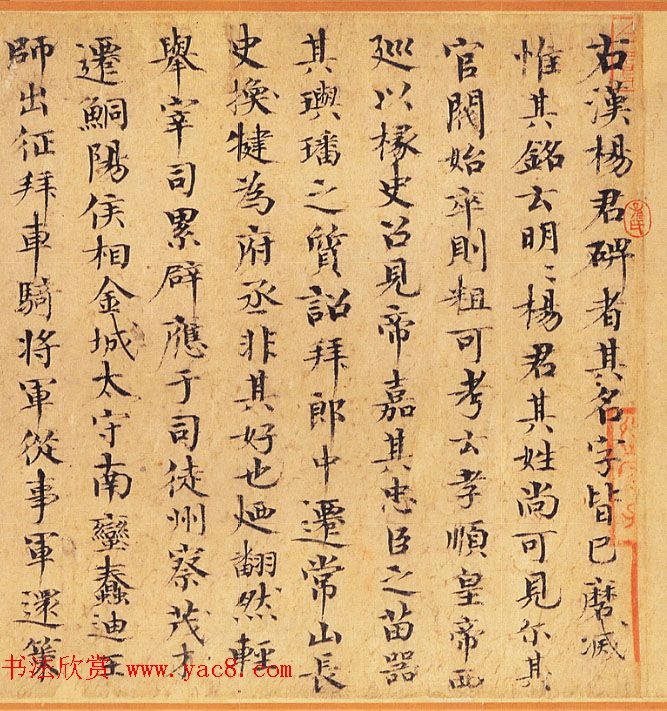 右漢楊君碑者其名字皆已磨滅
惟其銘云明〻楊君其姓尚可見尔其
官閥始卒則粗可考云孝順皇帝西
巡以掾史召見帝嘉其忠臣之苗器
其璵璠之質詔拜郎中遷常山長
史換犍為府丞非其好也廼翻然輕
舉宰司累辟應于司徒州察茂才
遷鮦陽侯相金城太守南蠻蠢迪王
師出征拜車騎將軍從事軍還策
书法欣赏 www.yac8.com